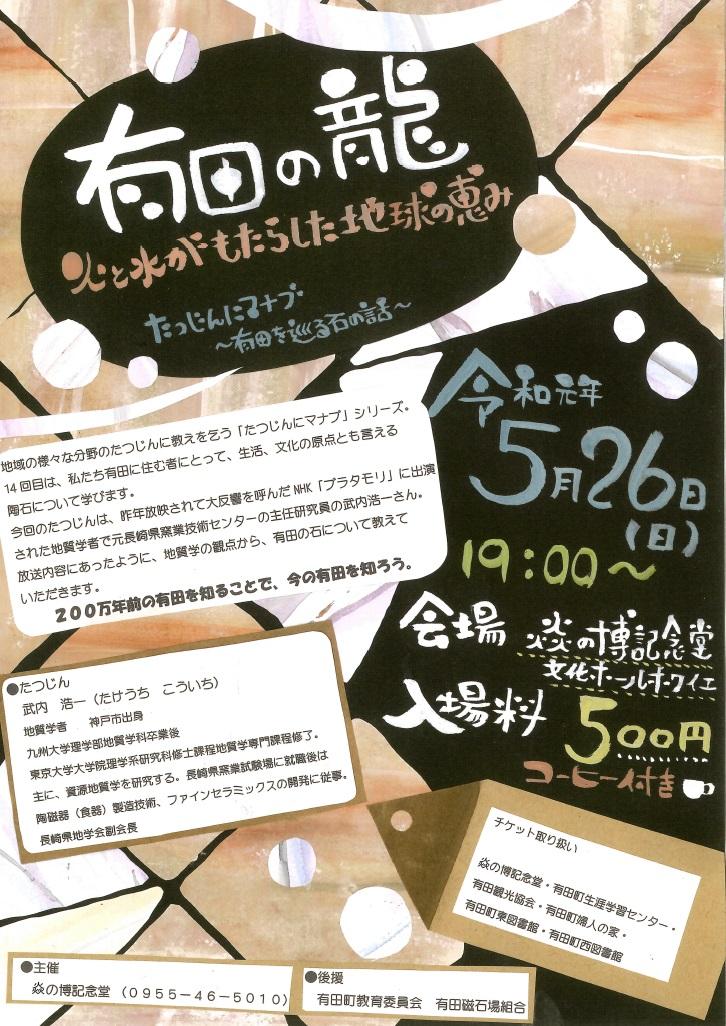 有田の龍
火と水がもたらした地球の恵み
たつじんにマナブ
～有田を巡る石の話～
令和元年
5月26日
(日)
19:00～
会場 焱の博記念堂
文化ホールホワイエ
入場料 500円
コーヒー付き
地域の様々な分野のたつじんに教えを乞う「たつじんにマナブ」シリーズ。
14回目は、私たち有田に住む者にとって、生活、文化の原点とも言える
陶石について学びます。
今回のたつじんは、昨年放映されて大反響を呼んだNHK「ブラタモリ」に出演
された地質学者で元長崎県窯業技術センターの主任研究員の武内浩一さん。
放送内容にあったように、地質学の観点から、有田の石について教えて
いただきます。
200万年前の有田を知ることで、今の有田を知ろう。
●たつじん
武内 浩一(たけうち こういち)
地質学者 神戸市出身
九州大学理学部地質学科卒業後
東京大学大学院理学系研究科修士課程地質学専門課程修了。
主に、資源地質学を研究する。長崎県窯業試験場に就職後は
陶磁器(食器)製造技術、ファインセラミックスの開発に従事。
長崎県地学会副会長
チケット取り扱い
焱の博記念堂・有田町生涯学習センター・
有田観光協会・有田町婦人の家・
有田町東図書館・有田町西図書館
●主催
焱の博記念堂 (0955-46-5010)
●後援
有田町教育委員会 有田磁石場組合